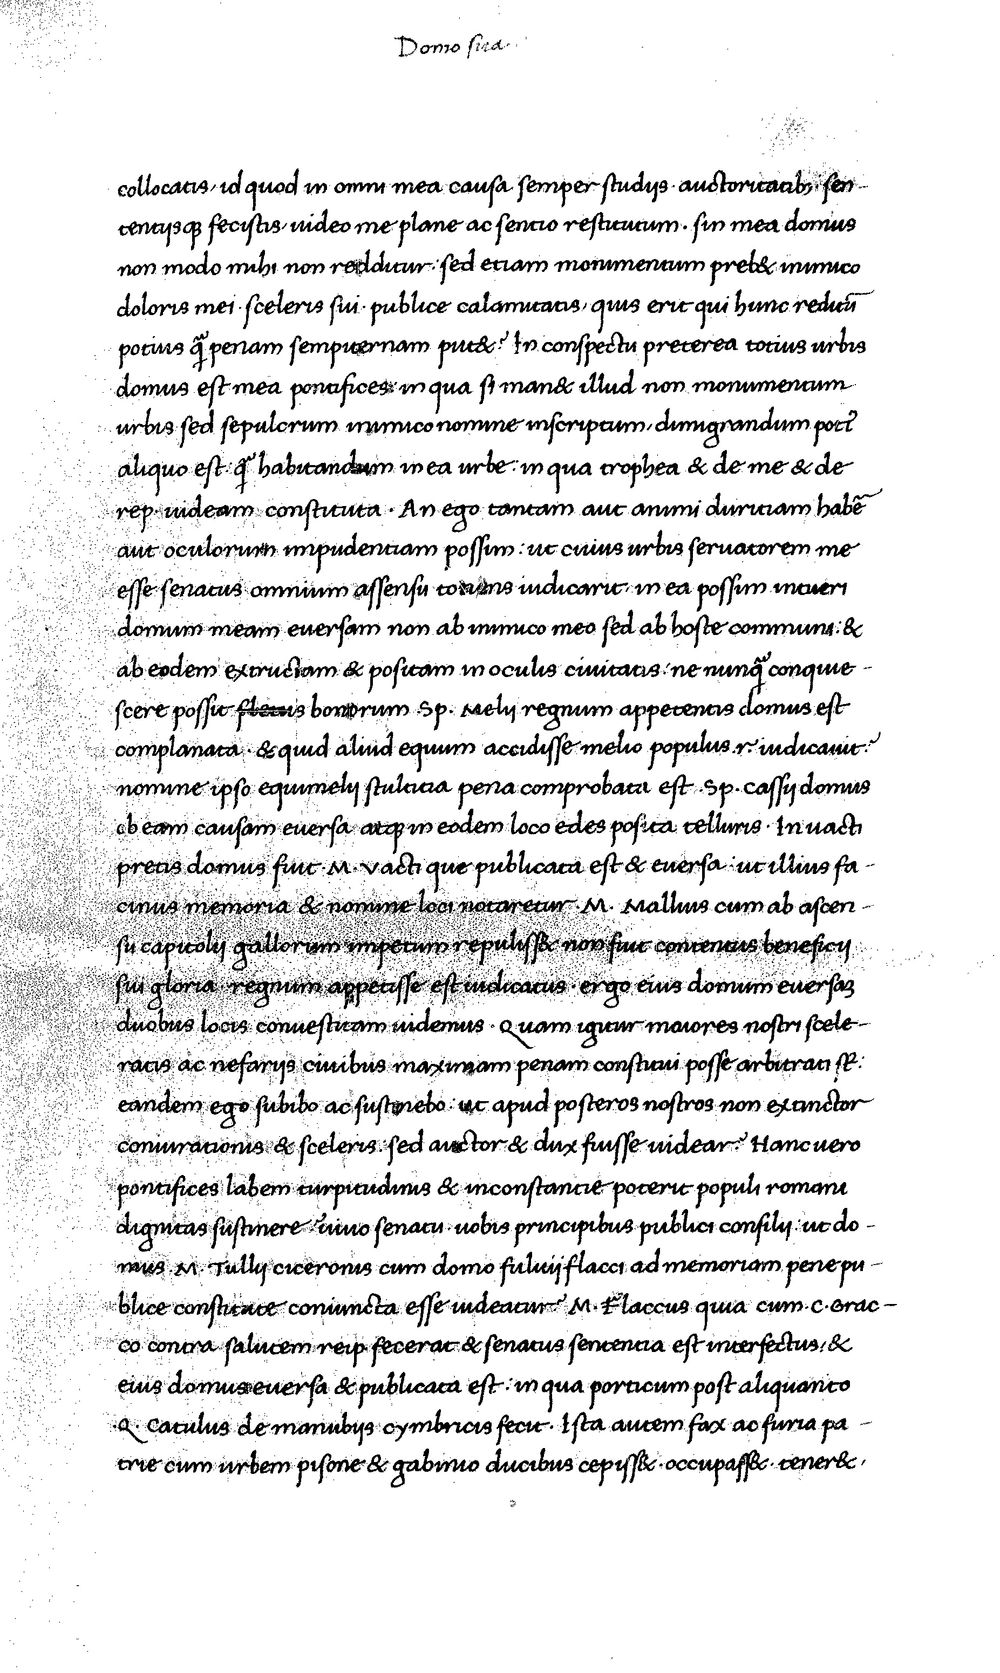 Domo sua.
collocatis, id quod in omni mea causa semper studijs auctoritatib; sen-
tentijsq; fecistis, uideo me plane ac sentio restitutum. sin mea domus
non modo mihi non redditur sed etiam monumentum preb& inimico
doloris mei sceleris sui publice calamitatis, quis erit qui hunc reditū
potius q̄ penam sempiternam put&? In conspectu preterea totius urbis
domus est mea pontifices in qua si man& illud non monumentum
urbis sed sepulcrum inimico nomine inscriptum, dimigrandum potī
aliquo est q̄ habitandum in ea urbe: in qua trophea & de me & de
rep. uideam constituta. An ego tantam aut animi duritiam habē
aut oculorum impudentiam possim: ut cuius urbis seruatorem me
esse senatus omnium assensu totiens iudicarit, in ea possim intueri
domum meam euersam non ab inimico meo sed ab hoste communi: &
ab eodem extructam & positam in oculis ciuitatis: ne nunq̄ conquie-
scere possit fletus bonorum Sp. Melij regnum appetentis domus est
complanata. & quid aliud equum accidisse melio populus .r. iudicauit?
nomine ipso equimelij stultitia pena comprobata est. Sp. Cassij domus
ob eam causam euersa atq; in eodem loco edes posita telluris. In uacti
pretis domus fuit M. Vacti que publicata est & euersa: ut illius fa-
cinus memoria & nomine loci notaretur. M. Mallius cum ab ascen-
su capitolij gallorum impetum repuliss& non fuit contentus beneficij
sui gloria regnum appetisse est iudicatus. ergo eius domum euersaȝ
duobus locis conuestitam uidemus. Quam igitur maiores nostri scele-
ratis ac nefarijs ciuibus maximam penam constitui posse arbitrati st̄:
eandem ego subibo ac sustinebo: ut apud posteros nostros non extinctor
coniurationis & sceleris: sed auctor & dux fuisse uidear? Hanc uero
pontifices labem turpitudinis & inconstantie poterit populi romani
dignitas sustinere? uiuo senatu uobis principibus publici consilij: ut do-
mus M. Tullij ciceronis cum domo fuluij flacci ad memoriam pene pu-
blice constitute coniuncta esse uideatur? M. Flaccus quia cum .c. Grac-
co contra salutem reip fecerat & senatus sententia est interfectus, &
eius domus euersa & publicata est: in qua porticum post aliquanto
Q. Catulus de manubijs cymbricis fecit. Ista autem fax ac furia pa-
trie cum urbem pisone & gabinio ducibus cepiss& occupass& tener&,